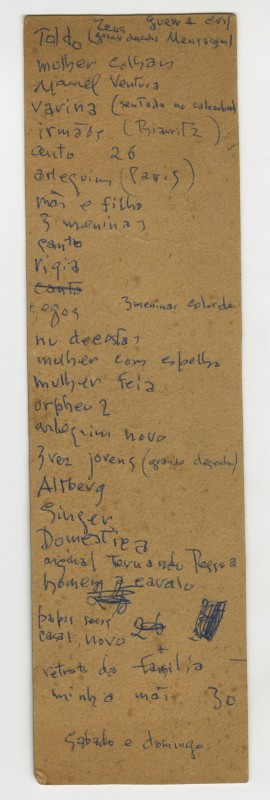 Zeus guerra civil
Toldo (grande desenho Mensagem)
mulher colhar
Manuel Ventura
varina (sentada no calcanhar)
irmãos (Biarritz)
canto 26
arlequim (Paris)
mãe e filho
3 meninas
canto
vigia
canto
cegos 3 meninas coloridas
nu de costas
mulher com espelho
mulher feia
orpheu 2
arlequim novo
3 vez jovens (grande desenho)
Altberg
Singer
Domestica
original Fernando Pessoa
homem a cavalo
26
casal novo 26
retrato da familia
minha mãe 30
Sabado e domingo